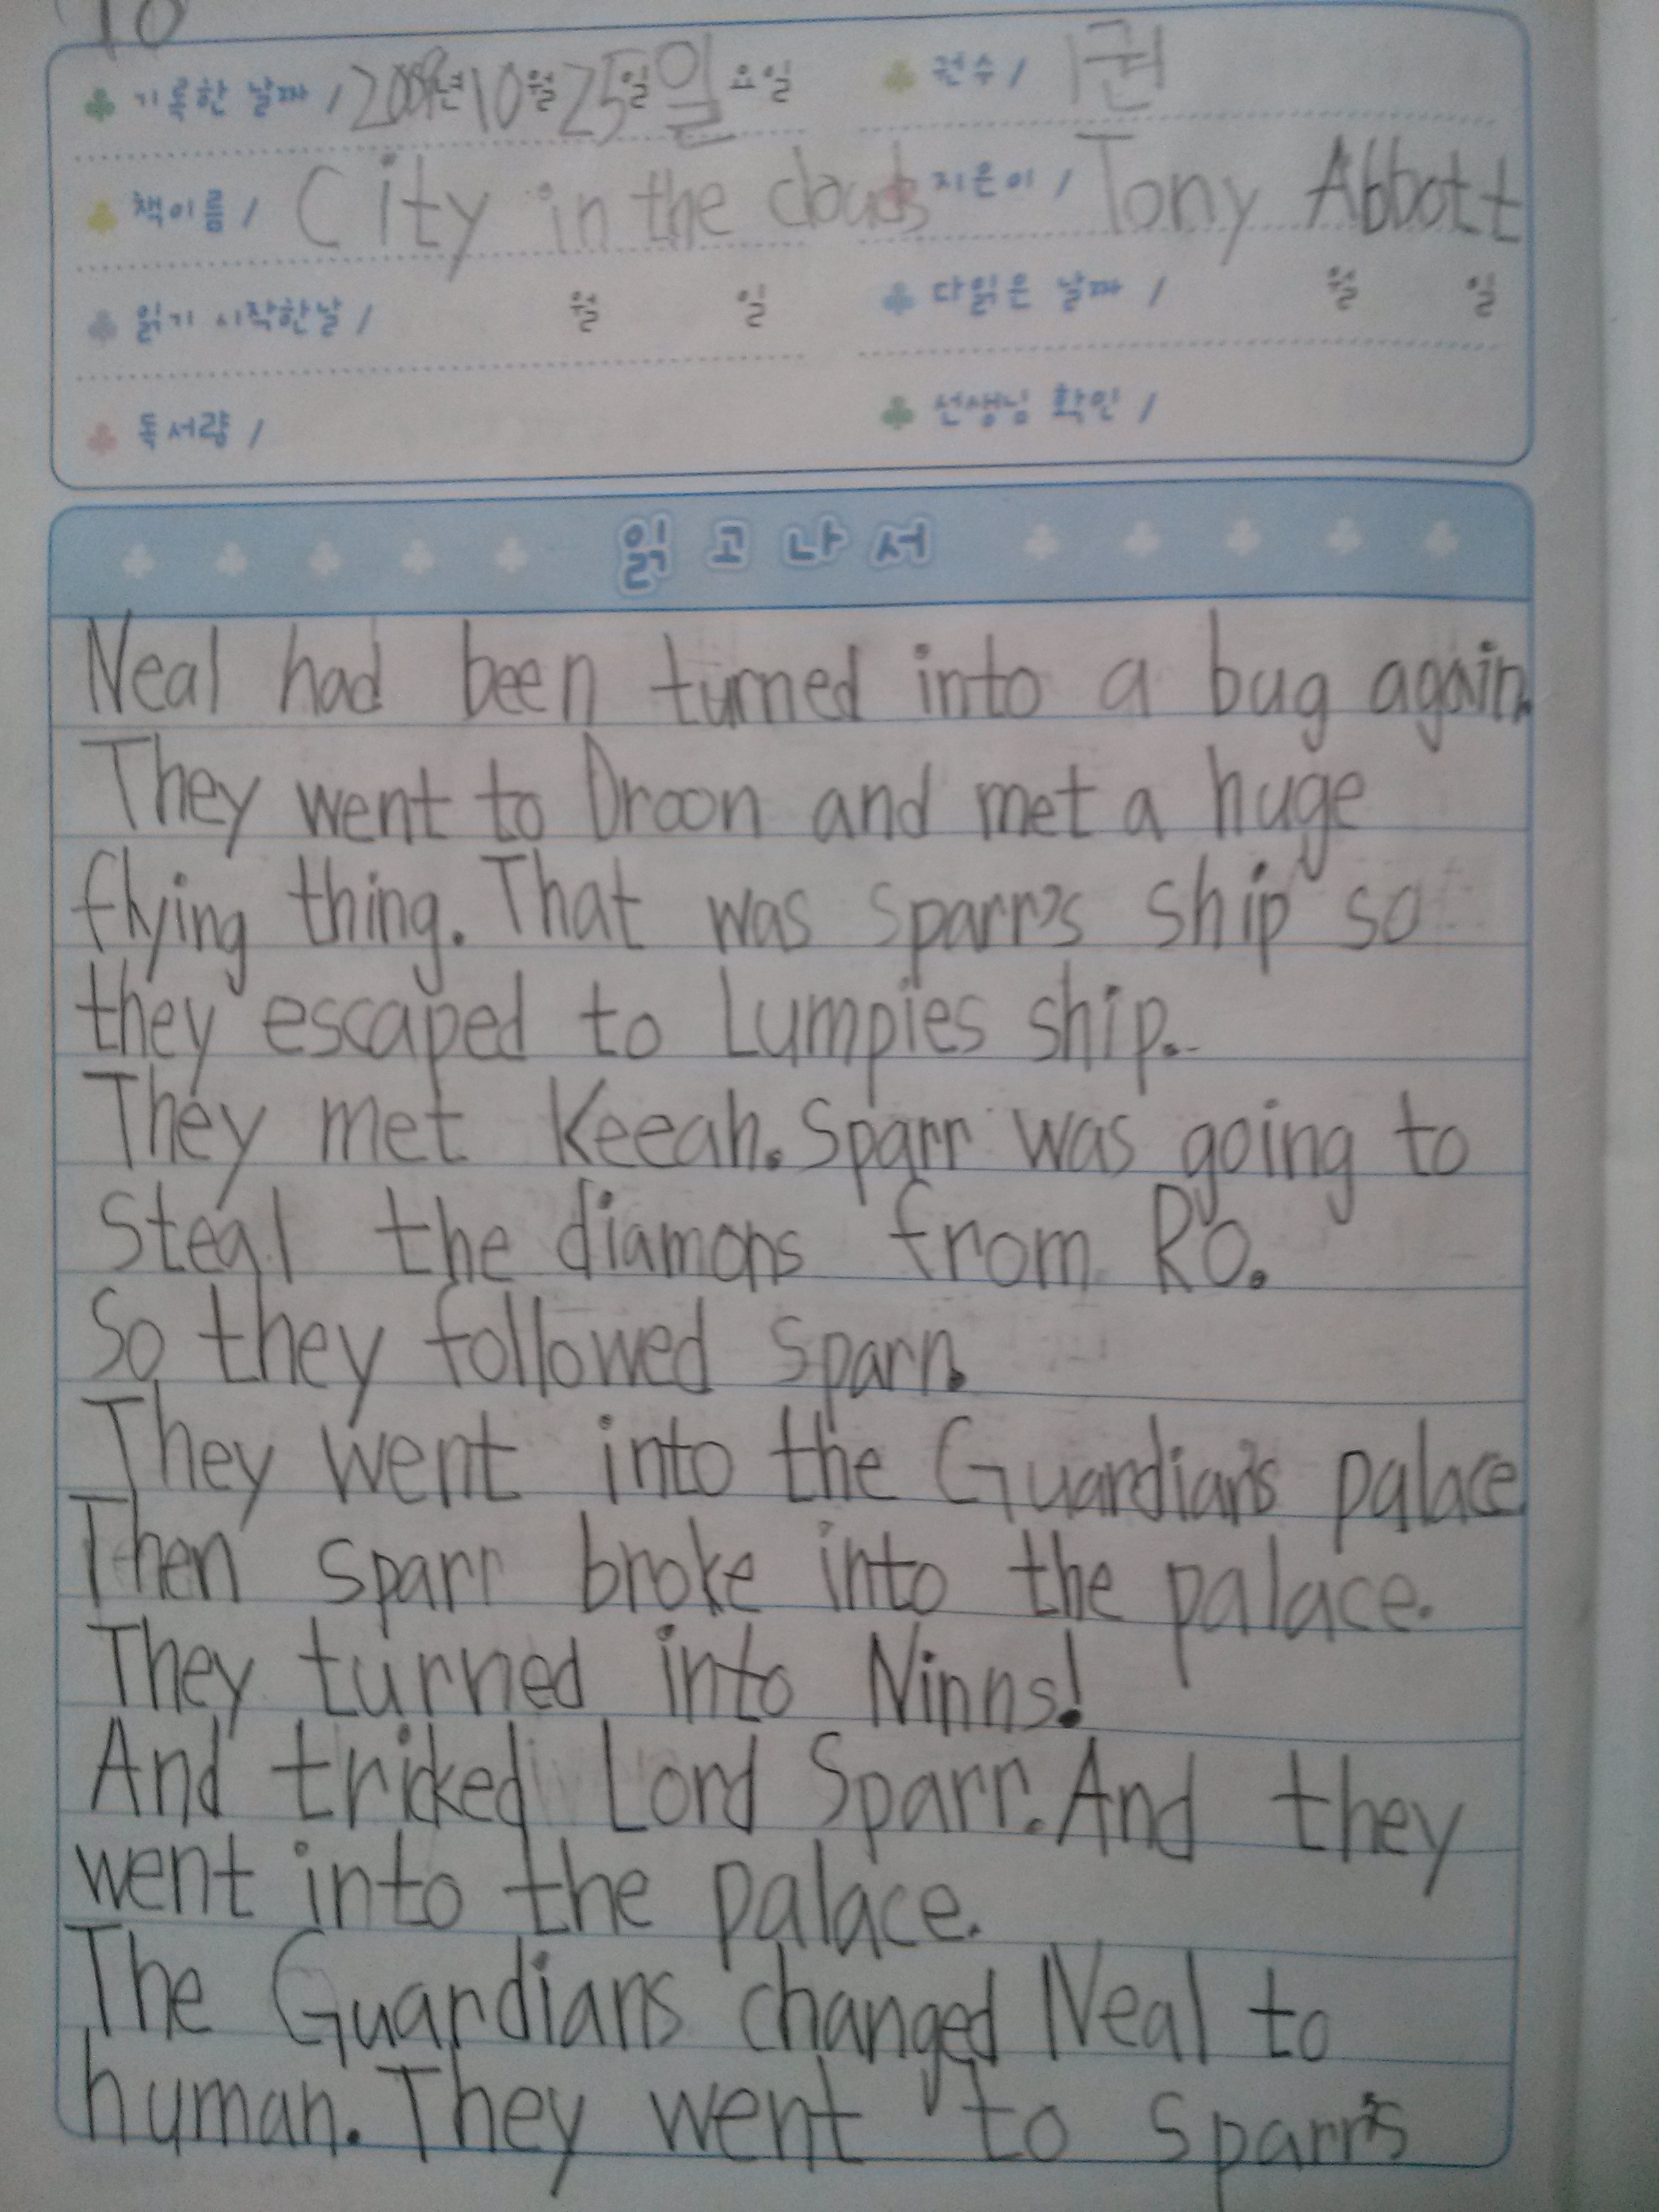 10
기록한 날짜 / 2009년 10월 25일 일요일 권수 / 1권
책이름 / City in the clouds 지은이 / Tony Abbott
읽기 시작한날 / 월 일 다읽은 날짜 / 월 일
독서량 / 선생님 확인 /
읽고나서
Neal had been turned into a bug again.
They went to Droon and met a huge
flying thing. That was sparr's ship so
they escaped to Lumpies ship.
They met Keeah. Sparr was going to
steal the diamons from RO.
So they followed sparr.
They went into the Guardian's palace
Then sparr broke into the palace.
They turned into Ninns!
And tricked Lord Sparr. And they
went into the palace.
The Guardians changed Neal to
human. They went to sparr's